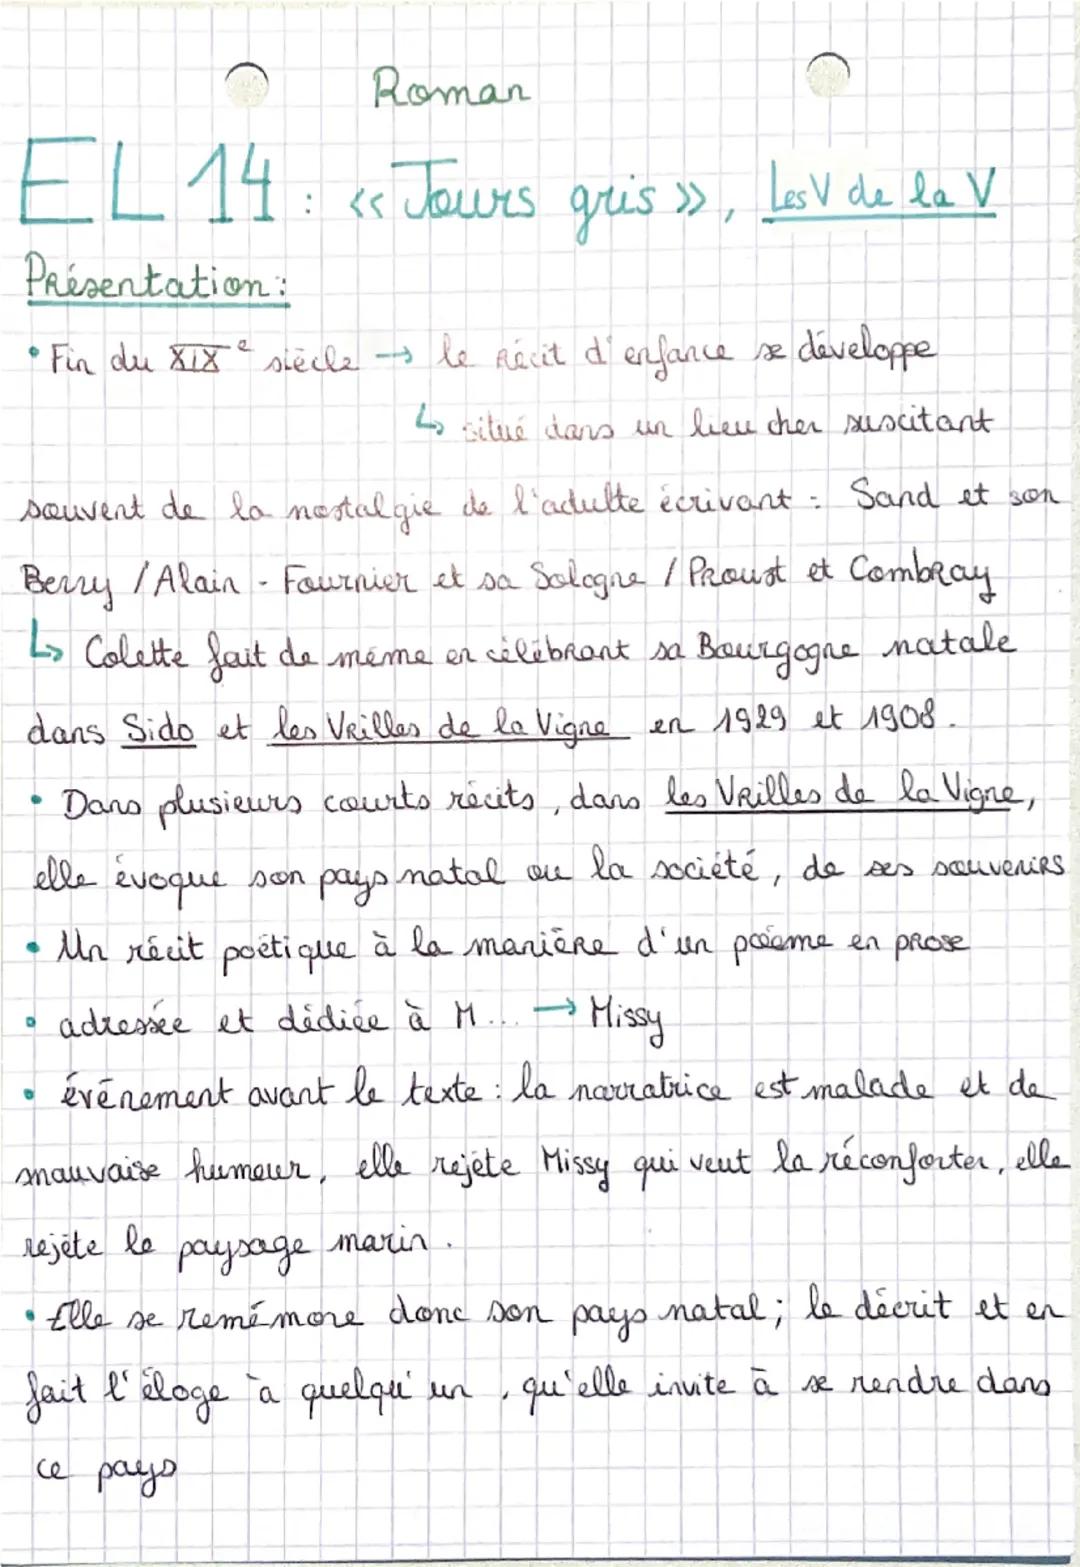 Roman
EL 14 : « Jours gris », Les V de la V
Présentation :
• Fin du XIXe siècle → le récit d'enfance se développe
↳ situé dans un lieu cher suscitant
souvent de la nostalgie de l'adulte écrivant : Sand et son
Berry / Alain - Fournier et sa Sologne / Proust et Combray
↳ Colette fait de même en célébrant sa Bourgogne natale
dans Sido et les Vrilles de la Vigne en 1929 et 1908.
• Dans plusieurs courts récits, dans les Vrilles de la Vigne,
elle évoque son pays natal ou la société, de ses souvenirs
• Un récit poétique à la manière d'un poème en prose
• adressée et dédiée à M... → Missy
• événement avant le texte : la narratrice est malade et de
mauvaise humeur, elle rejète Missy qui veut la réconforter, elle
rejète le paysage marin.
• Elle se remémore donc son pays natal; le décrit et en
fait l'éloge à quelqu'un, qu'elle invite à se rendre dans
ce pays